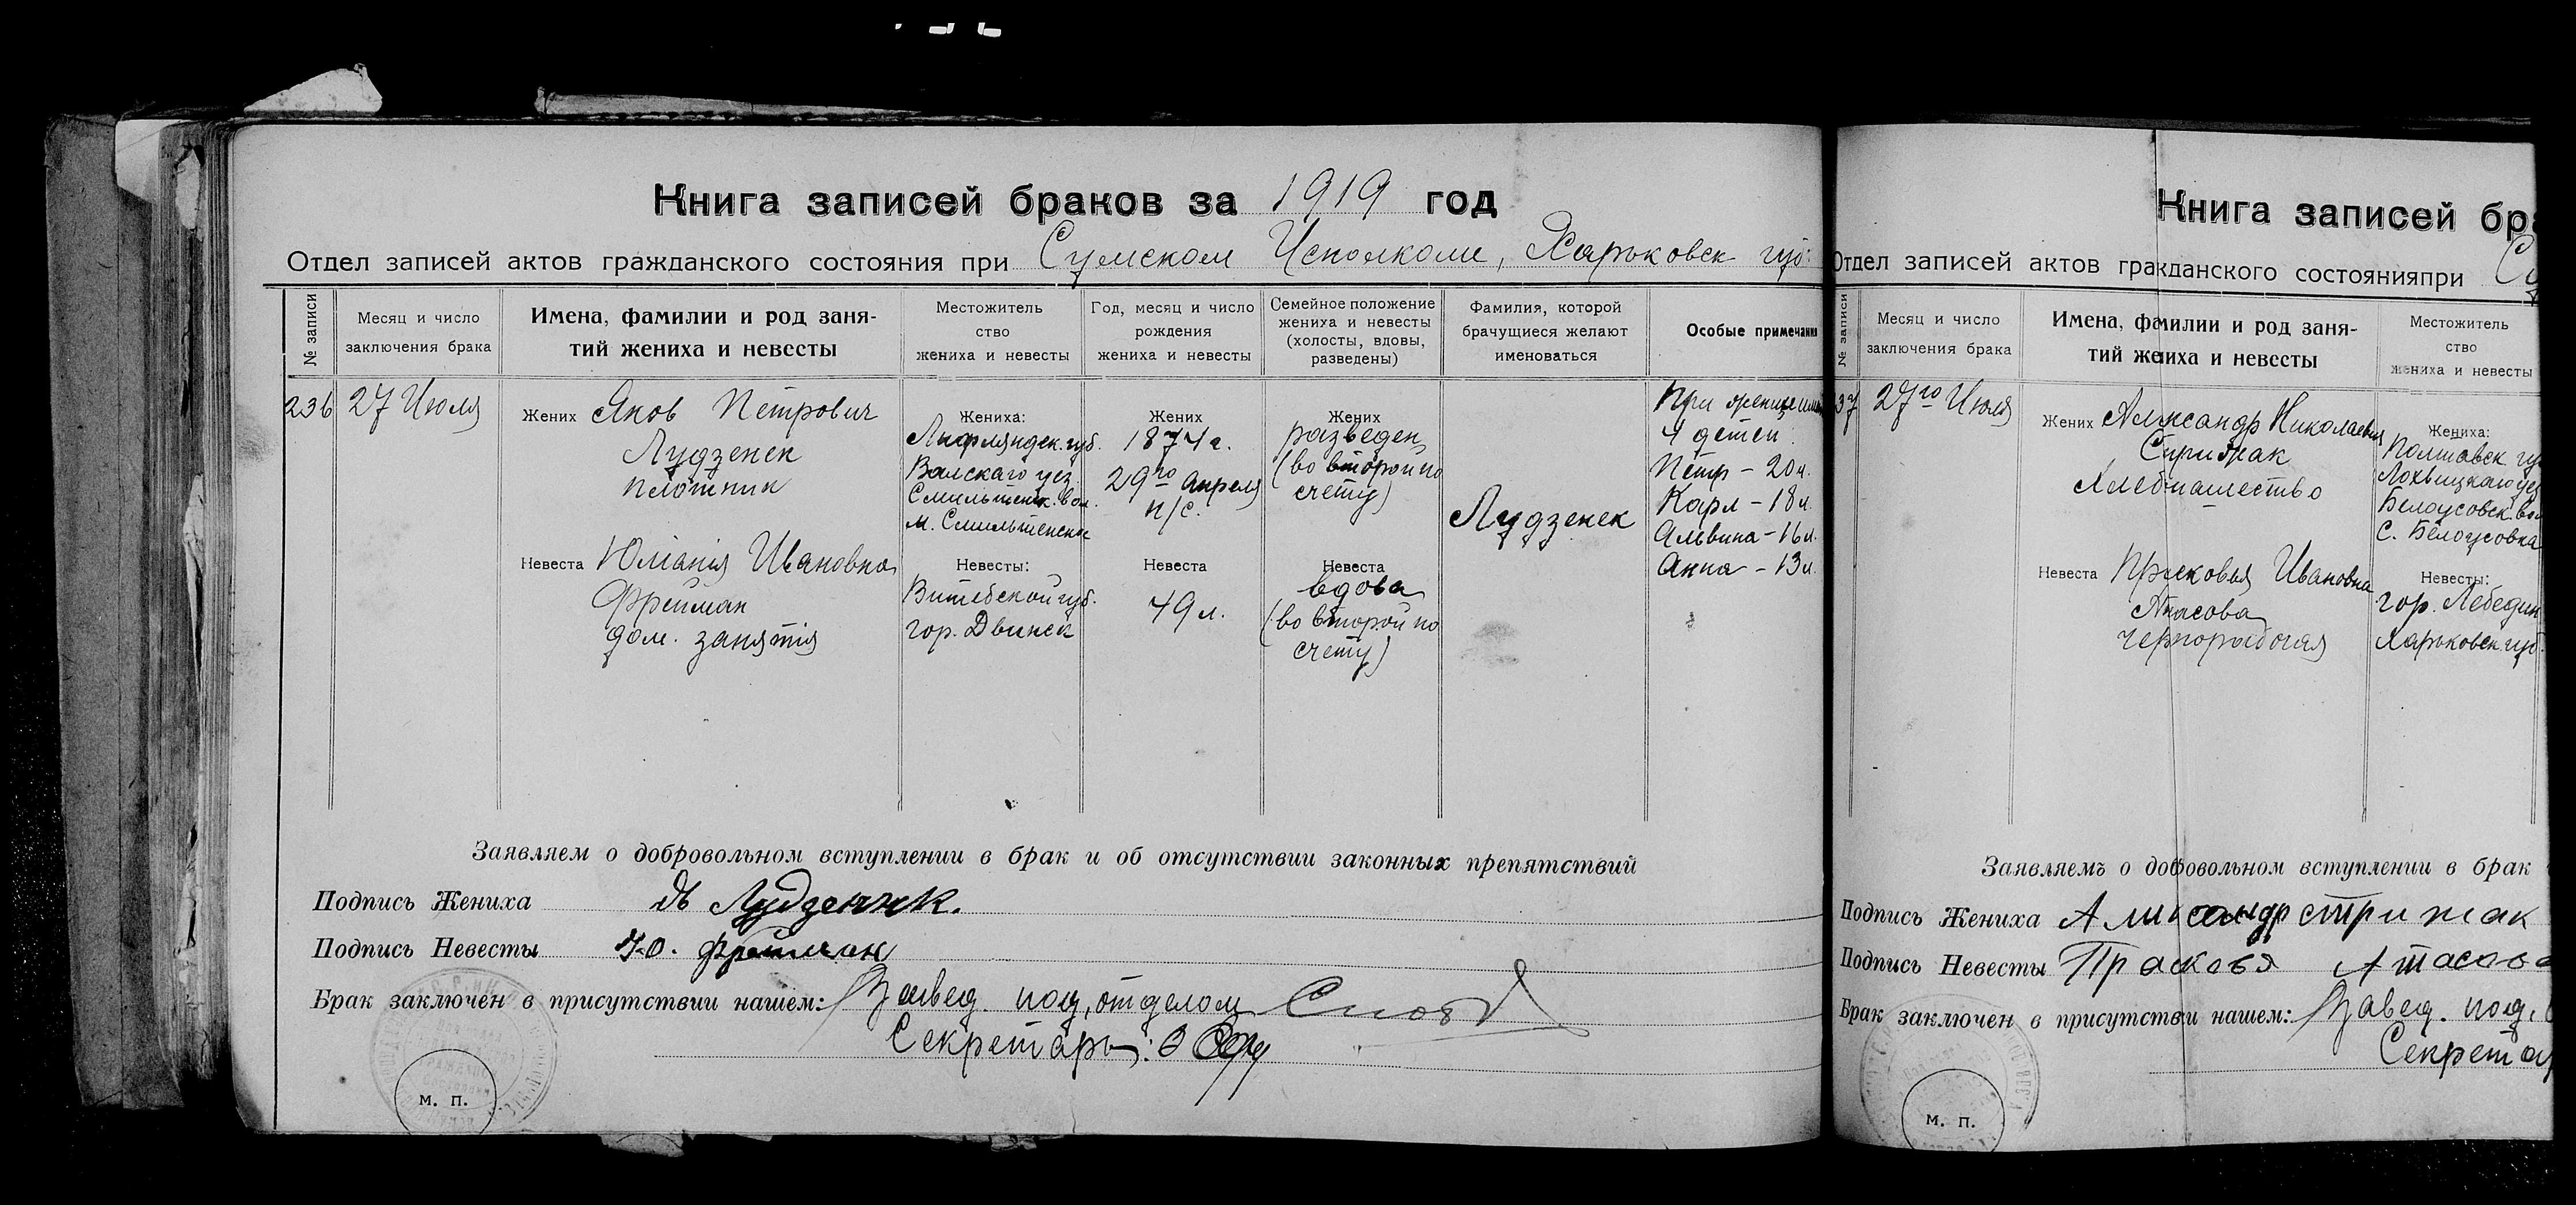 Книга записей браков за 1919 год
Отдел записей актов гражданского состояния при Сумском Исполкоме, Харьковск. губ.
№ записи
Месяц и число
заключения брака
Имена, фамилии и род заня-
тий жениха и невесты
Местожитель
ство
жениха и невесты
Год, месяц и число
рождения
жениха и невесты
Семейное положение
жениха и невесты
(холосты, вдовы,
разведены)
Фамилия, которой
брачущиеся желают
именоваться
Особые примечания
236
27 Июля
Жених Яков Петрович
Лудзенек
плотник
Невеста Юлiанiя Ивановна
Фрейман
дом. занятiя
Жениха:
Лифляндск. губ.
Валскаго уез.
Смильтенск. вол.
м. Смильтенское
Невесты:
Витебской губ.
гор. Двинск
Жених
1874 г.
29го Апреля
н/с.
Невеста
49 л.
Жених
разведен
(во второй по
счету)
Невеста
вдова
(во второй по
счету)
Лудзенек
При женихе
4 детей:
Петр - 20 л.
Карл - 18 л.
Альвина - 16 л.
Анна - 13 л.
Заявляем о добровольном вступлении в брак и об отсутствии законных препятствий
Подпись Жениха Лудзенек.
Подпись Невесты Ю. Фрейман
Брак заключен в присутствии нашем: Завед. под, отделом
Секретарь:
м. п.
Книга записей бра
Отдел записей актов гражданского состоянияпри Су
№ записи
Месяц и число
заключения брака
Имена, фамилии и род заня-
тий жениха и невесты
Местожитель
ство
жениха и невесты
37
27го Июля
Жених Александр Николаевич
Стрижак
Хлебопашество
Невеста Прасковья Ивановна
Атасова
чернорабочая
Жениха:
Полтавск. гу
Лохвицкаго уез
Белоусовск. вол
С. Белоусовка
Невесты:
гор. Лебедин
Харьковск. губ.
Заявляемъ о добровольном вступлении в брак
Подпись Жениха Александр стрижак
Подпись Невесты Прасковя Атасова
Брак заключен в присутствии нашем: Завед. под,
Секретар
м. п.